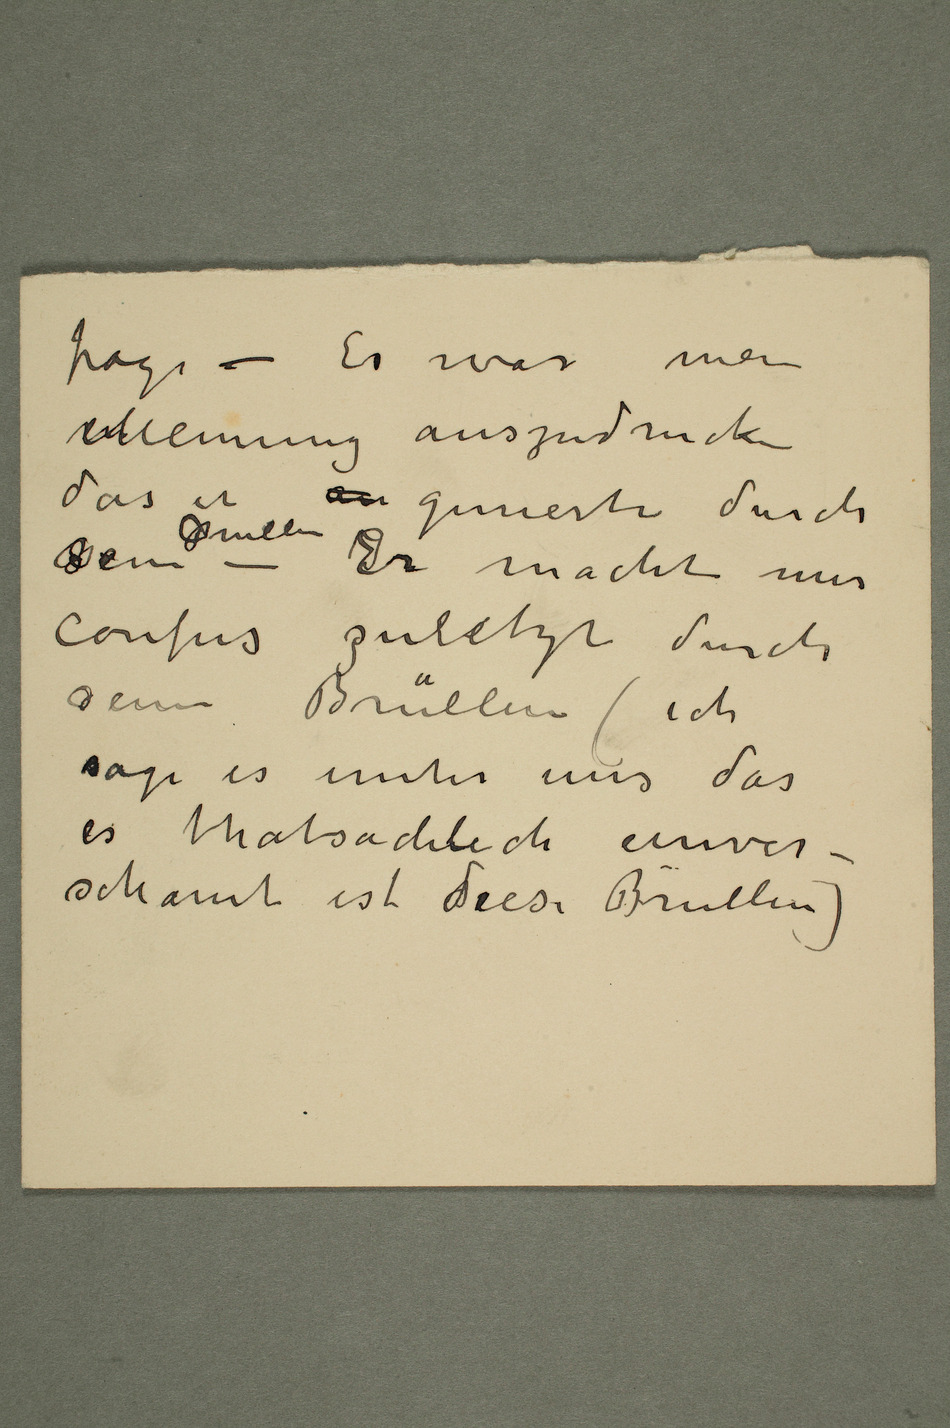 frage – Es war mein
Meinung auszudrucken
das er an genierte durch
Brüllen
sein – Er macht mir
confus zuletzt durch
sein Brüllen (ich
sage es unter uns das
es thatsächlich unver–
schamt ist diese Brüllen)